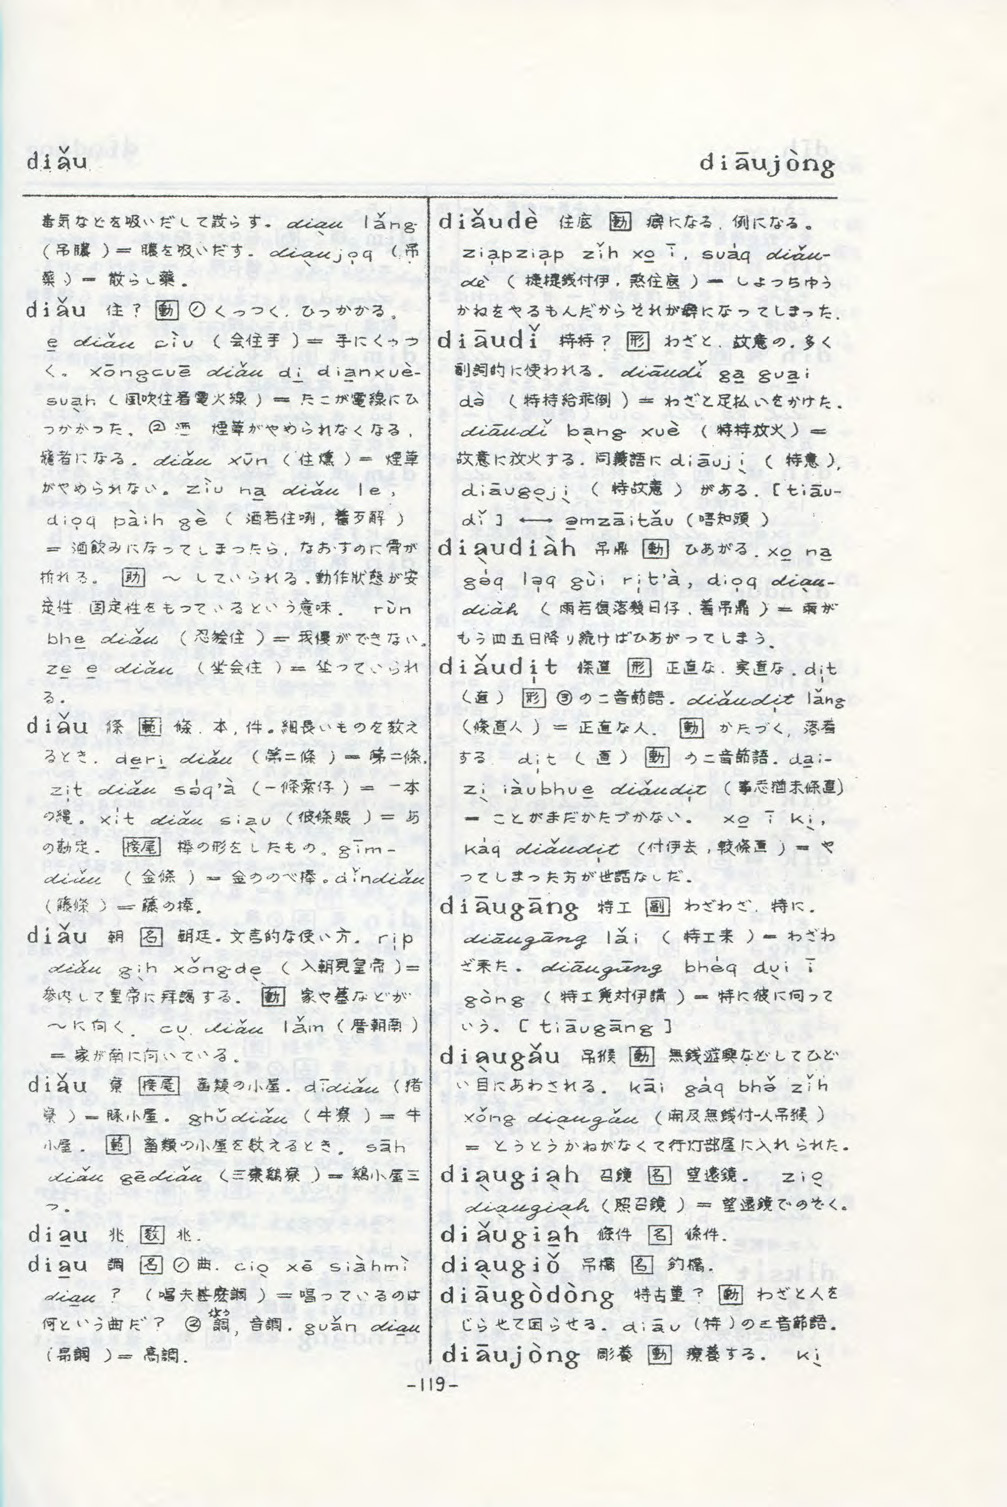 diǎu
diāujòng
毒気などを吸いだして散らす。diau lǎng
(吊膿)＝膿を吸いだす。diaujoq (吊
薬)＝散らし薬。
diǎu 住？ [動] ①くっつく、ひっかかる。
e diǎu ciu (会住手)＝手にくっつ
く。xōngcuē diǎu di dianxuè-
suah (風吹住着電火線)＝たこが電線にひ
っかかった。② 煙草がやめられなくなる、
癮者になる。diǎu xūn (住燻)＝煙草
がやめられない。zìu na diǎu le,
dioq pàih gè (酒若住咧,着歹解)
＝酒飲みになってしまったら、なおすのに骨が
折れる。[助] ～していられる、動作状態が安
定性、固定性をもっているという意味。rùn
bhe diǎu (忍𣍐住)＝我慢ができない。
ze e diǎu (坐会住)＝坐っていられ
る。
diǎu 條 [範] 條、本、件。細長いものを数え
るとき。deri diǎu (第二條)＝第二條。
zit diǎu sóq'à (一條索仔)＝一本
の縄。xit diǎu siau (彼條賬)＝あ
の勘定。[接尾] 棒の形をしたもの。gīm-
diǎu (金條)＝金ののべ棒。dǐndiǎu
(藤條)＝藤の棒。
diǎu 朝 [名] 朝廷。文言的な使い方。rip
diǎu gih xǒngde (入朝見皇帝)＝
参内して皇帝に拝謁する。[動] 家や墓などが
～に向く。cu diǎu lǎm (厝朝南)
＝家が南に向いている。
diǎu 寮 [接尾] 畜類の小屋。dīdiǎu (猪
寮)＝豚小屋。ghǔdiǎu (牛寮)＝牛
小屋。[範] 畜類の小屋を数えるとき。sāh
diǎu gēdiǎu (三寮鶏寮)＝鶏小屋三
つ。
diau 兆 [数] 兆。
diau 調 [名] ①曲。cio xē siàhmì
diau ? (唱夫甚麽調)＝唱っているのは
何という曲だ？ ②調、音調。guǎn diau
(昻調)＝高調。
diǎudè 住底 [動] 癖になる、例になる。
ziapziap zǐh xo ī, suáq diǎu-
dè (捷捷銭付伊,煞住底)＝しょっちゅう
かねをやるもんだからそれが癖になってしまった。
diāudǐ 特特？ [形] わざと、故意の。多く
副詞的に使われる。diāudǐ ga guai
dò (特特給乖倒)＝わざと足払いをかけた。
diāudǐ bang xuè (特特放火)＝
故意に放火する。同義語に diāuji (特意),
diāugoji (特故意) がある。[tiāu-
dǐ] ⟷ əmzāitǎu (唔知頭)
diaudiàh 吊鼎 [動] ひあがる。xo na
góq loq gùi rit'à, dioq diau-
diàh (雨若復落幾日仔,着吊鼎)＝雨が
もう四五日降り続けばひあがってしまう。
diǎudit 條直 [形] 正直な、実直な。dit
(直) [形] ③の二音節語。diǎudit lǎng
(條直人)＝正直な人。[動] かたづく、落着
する。dit (直) [動] の二音節語。dai-
zi iàubhue diǎudit (事志猶未條直)
＝ことがまだかたづかない。xo ī ki,
káq diǎudit (付伊去,較條直)＝や
ってしまった方が世話なしだ。
diāugāng 特工 [副] わざわざ、特に。
diāugāng lǎi (特工来)＝わざわ
ざ来た。diāugāng bhéq dui ī
gòng (特工覓対伊講)＝特に彼に向って
いう。[tiāugāng]
diaugǎu 吊猴 [動] 無銭遊興などしてひど
い目にあわされる。kāi gáq bhǒ zǐh
xǒng diaugǎu (開及無銭付-人吊猴)
＝とうとうかねがなくて行灯部屋に入れられた。
diaugiah 召鏡 [名] 望遠鏡。zio
diaugiah (照召鏡)＝望遠鏡でのぞく。
diǎugiah 條件 [名] 條件。
diaugiǒ 吊橋 [名] 釣橋。
diāugòdòng 特古董？ [動] わざと人を
じらせて困らせる。diāu (特)の三音節語。
diāujòng 彫養 [動] 療養する。ki
-119-